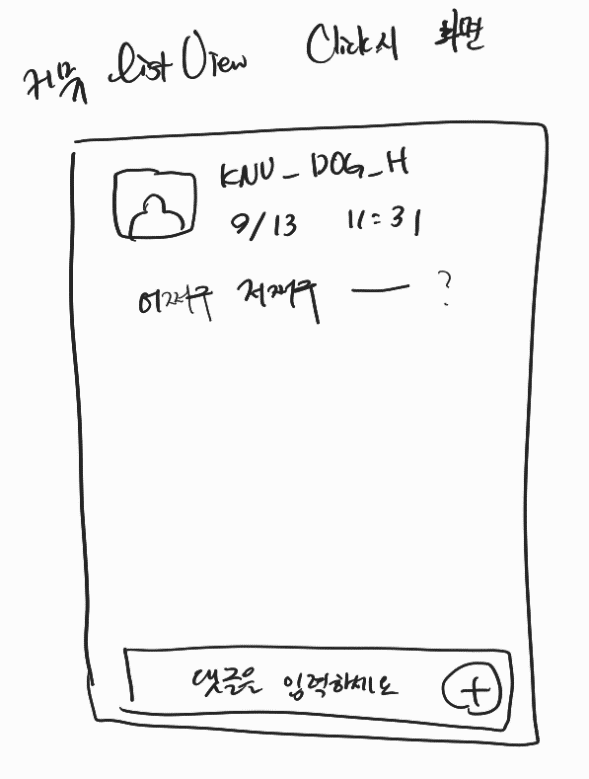 커뮤 listView Click시 화면
KNU_DOG_H
9/13 11:31
이러쿵 저러쿵 — ?
댓글은 입력하세요
+